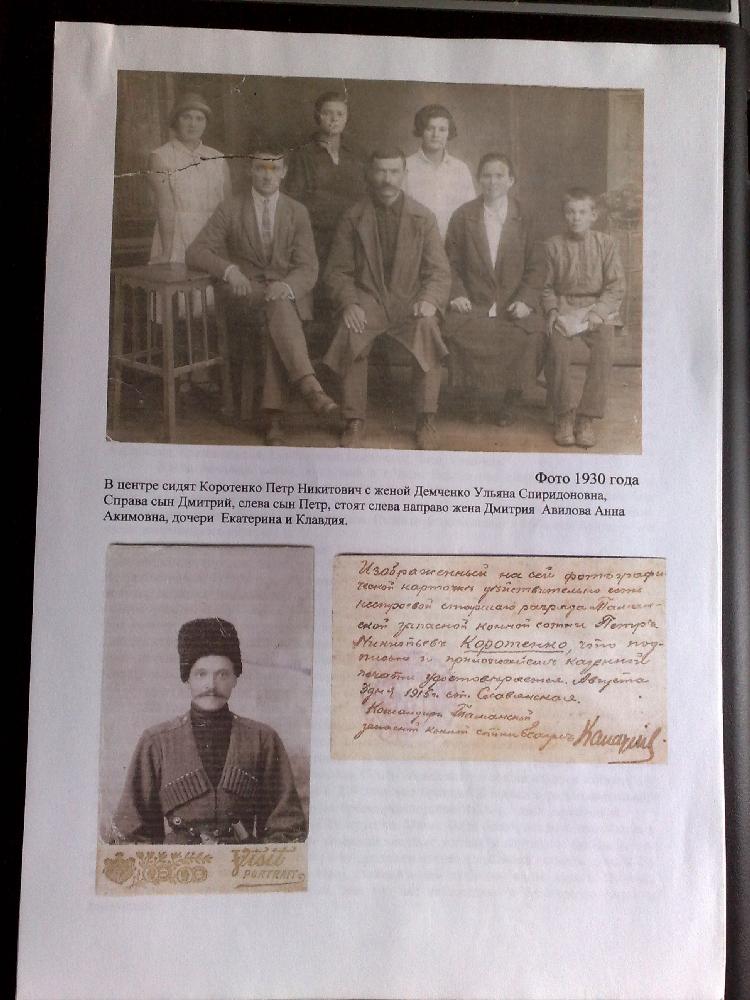 Фото 1930 года
В центре сидят Коротенко Петр Никитович с женой Демченко Ульяна Спиридоновна,
Справа сын Дмитрий, слева сын Петр, стоят слева направо жена Дмитрия Авилова Анна
Акимовна, дочери Екатерина и Клавдия.
Изображенный на сей фотографи-
ческой карточке действительно есть
нестроевой старшаго разряда Таман-
ской запасной конной сотни Петръ
Никитьевъ Коротенко, что под-
писью и приложениемъ казенной
печати удостоверяется. Августа
дня 1915 г. ст. Славянская.
Командиръ Таманской
запасной конной сотни
Visit
PORTRAIT